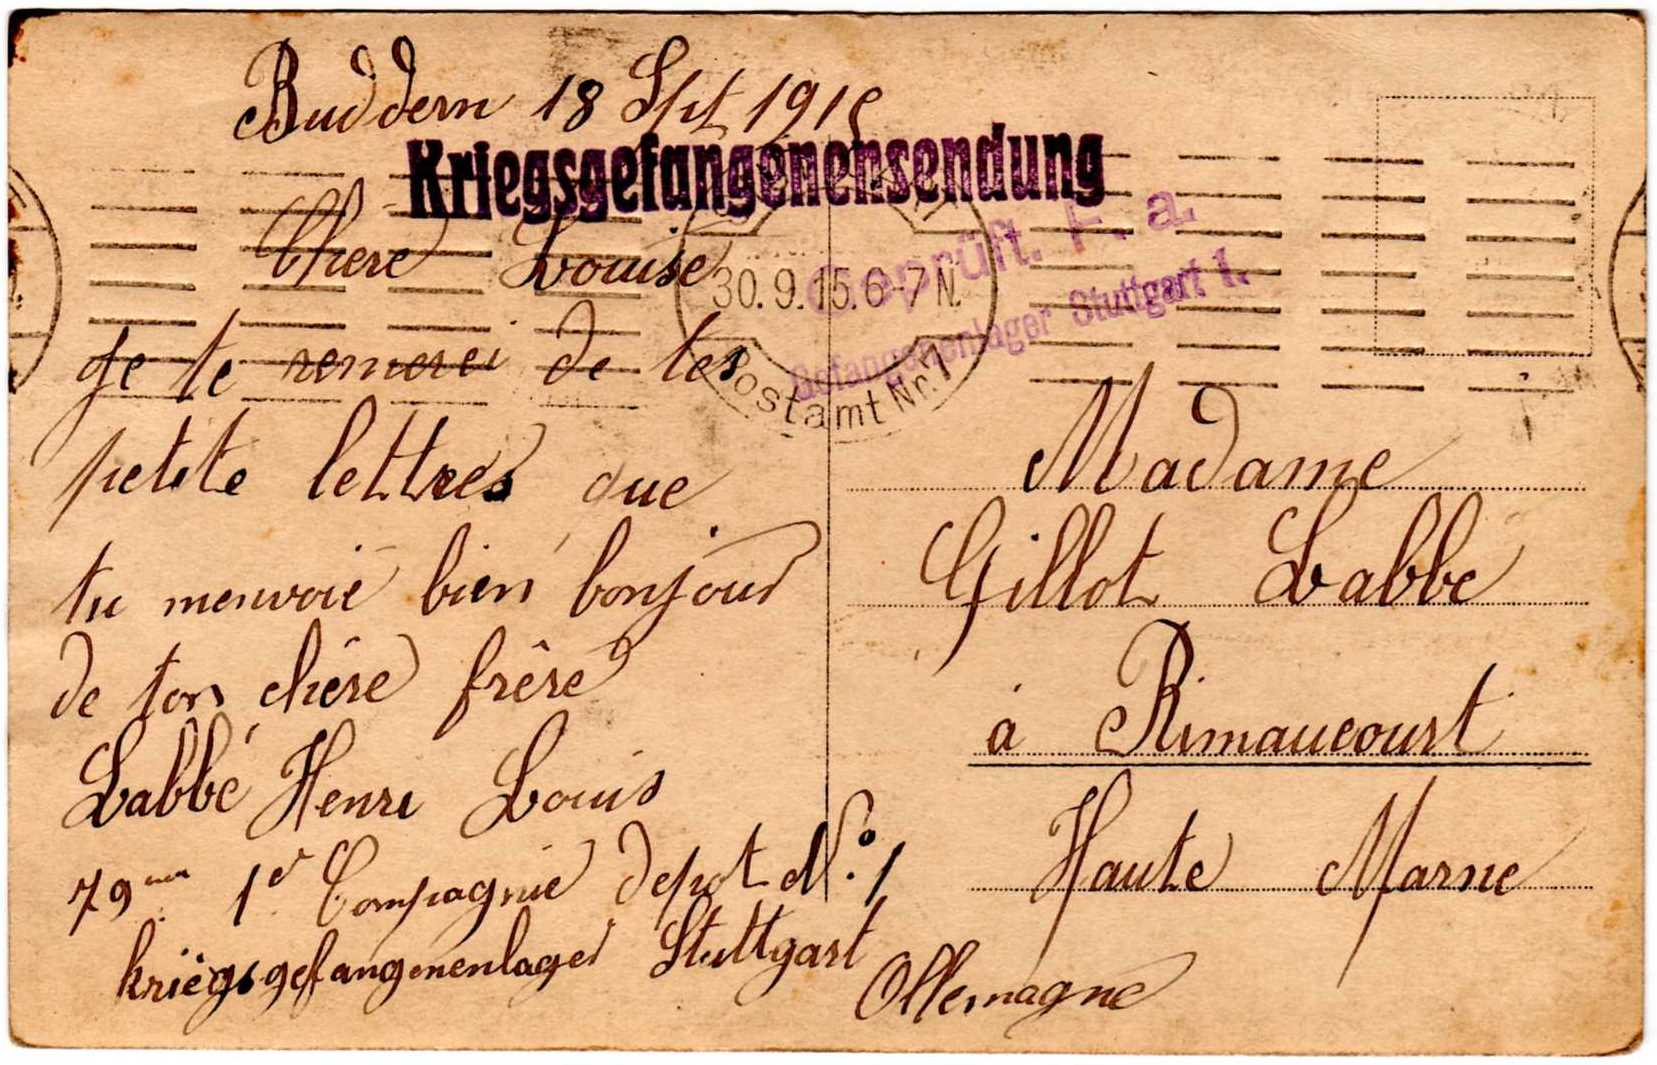 Buddern 18 Spt 1915
Kriegsgefangenensendung
Chere Louise
30.9.15.6-7 N.
Postamt Nr.1
Geprüft. F. a.
Gefangenenlager Stuttgart 1.
je te remerci de tes
petite lettres que
tu menvoie bien bonjour
de ton chére frêre
Labbé Henri Louis
79 1e Compagnie depot No. 1
kriegsgefangenenlager Stuttgart
Allemagne
Madame
Gillot Labbe
à Rimaucourt
Haute Marne